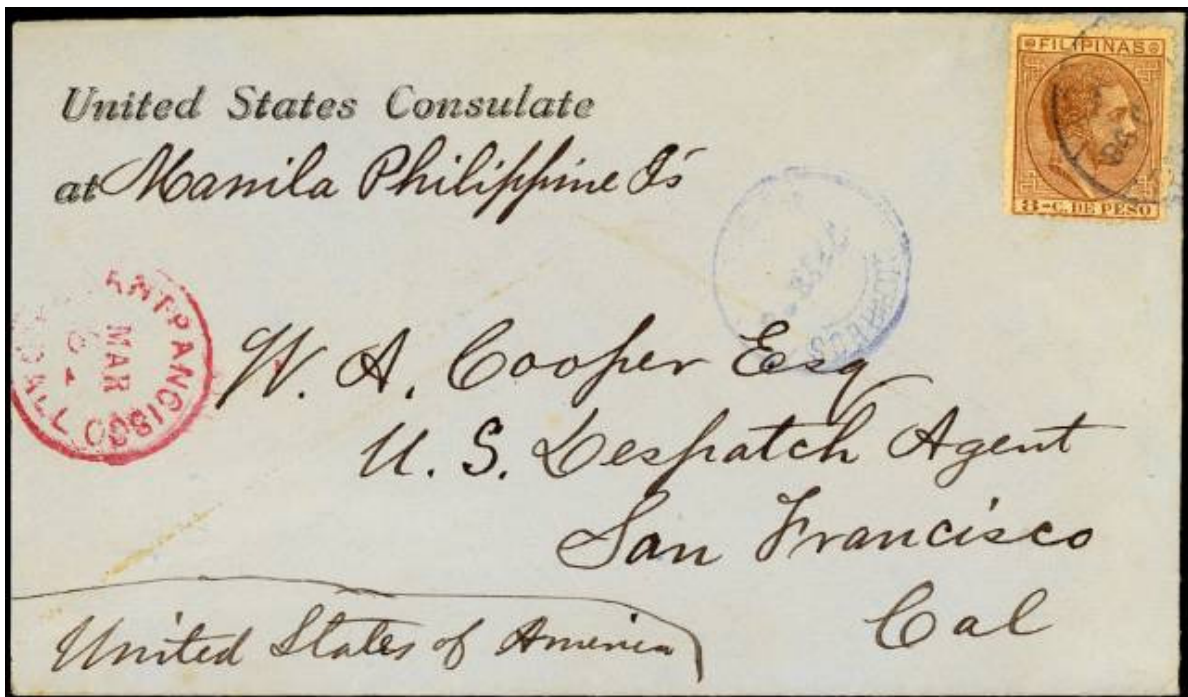 United States Consulate
at Manila Philippine Is
FILIPINAS
8-C. DE PESO
MAR
W. A. Cooper Esq
U. S. Despatch Agent
San Francisco
Cal
United States of America